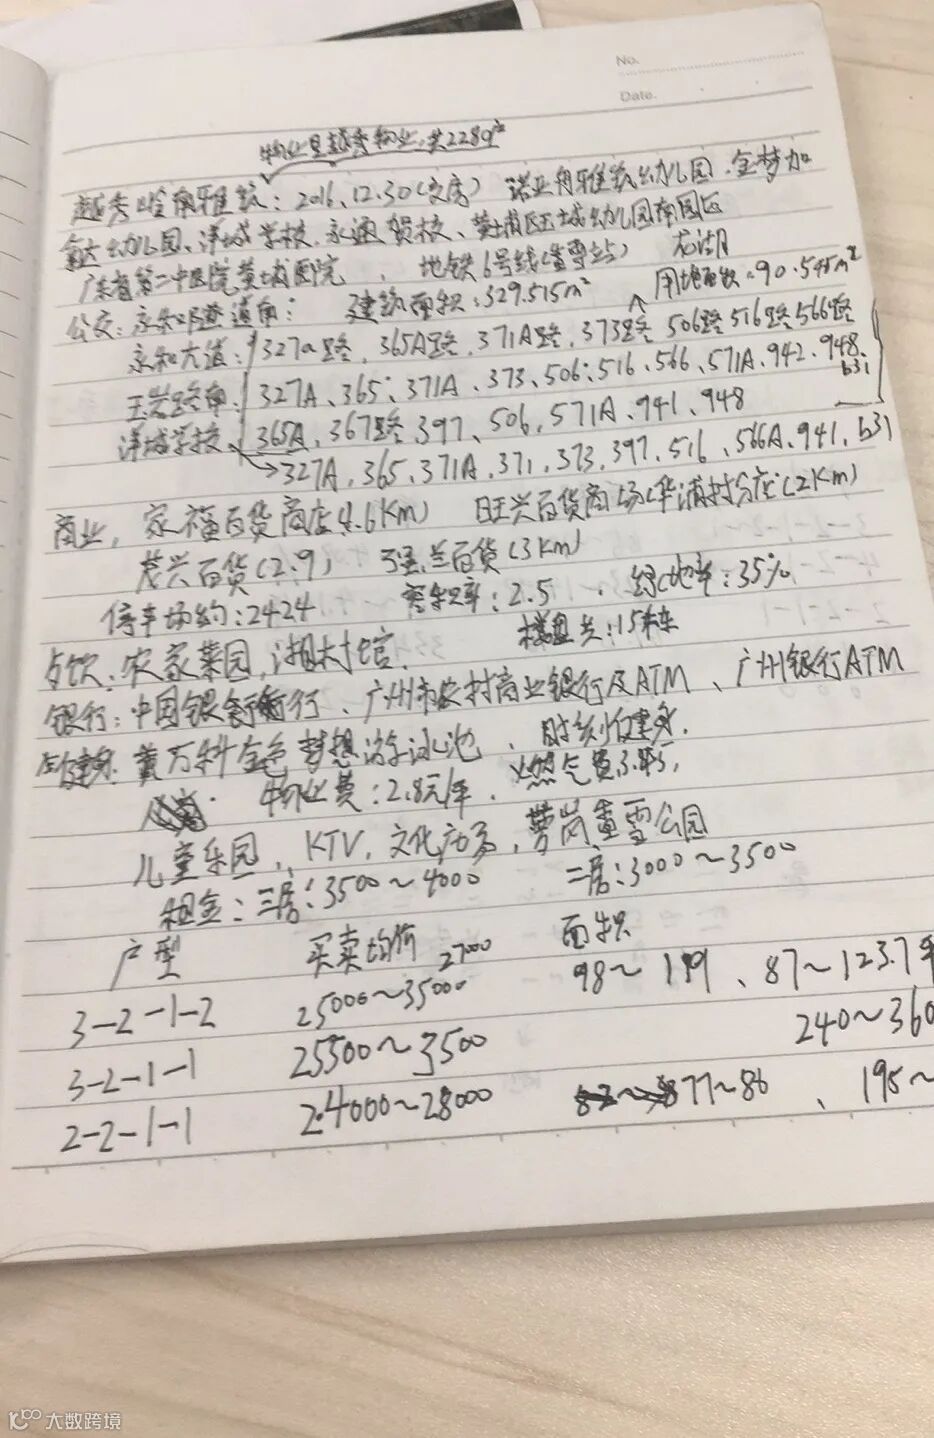 No.
Date.
物业是越秀物业,共2289户
越秀岭南雅筑:2016.12.30(交房) 诺亚舟雅筑幼儿园.金梦加
幼儿园、洋城学校、永通贺校、黄埔区玉城幼儿园南园区
广东省第二中医院黄埔医院、地铁6号线(萝站) 龙湖
公交:永和隧道角: 建筑面积:329.515m² 用地面积:90.545m²
永和大道:327a路、365A路、371A路、373路 506路516路566路
玉岩路角:327A、365;371A、373、506;516、566、571A.942.948.
b31
洋城学校 365A、367路、397、506、571A、941、948
327A、365、371A、371、373、397、516、566A、941、b31
商业,家福百货商店4.6Km) 旺兴百货商场(华浦村分店(2Km)
茂兴百货(2.9) 强兰百货(3Km)
停车场约:2424 容积率:2.5 .绿地率:35%
楼盘共:15栋
饮:农家菜园,湘村馆.
银行:中国银行、广州市农村商业银行及ATM、广州银行ATM
健身.黄万科金色梦想游泳池、时刻健身.
物业费:2.8元/平.燃气费3.45,
儿童乐园、KTV,文化广场,萝岗香雪公园
租金:三居:3500~4000 二居:3000~3500
户型 买卖均价 2700 面积
3-2-1-2 25000~35000 98~119、87~123.7平
3-2-1-1 25500~3500 240~360
2-2-1-1 2.4000~28000 77~86、195~
大数跨境